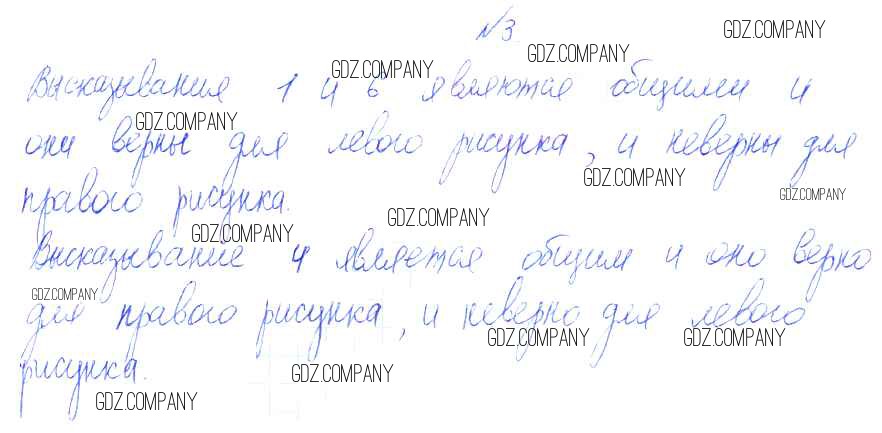 №3
GDZ.COMPANY
GDZ.COMPANY
GDZ.COMPANY
Высказывания 1 и 6 являются общими и
GDZ.COMPANY
они верны для левого рисунка, и неверны для
GDZ.COMPANY
GDZ.COMPANY
правого рисунка.
GDZ.COMPANY
GDZ.COMPANY
Высказывание 4 является общим и оно верно
GDZ.COMPANY
для правого рисунка, и неверно для левого
GDZ.COMPANY
GDZ.COMPANY
рисунка.
GDZ.COMPANY
GDZ.COMPANY